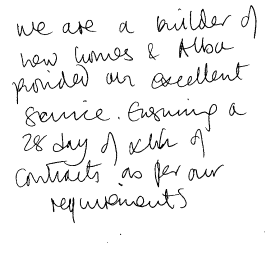 we are a builder of
new homes & Alba
provided an excellent
service. Ensuring a
28 day of of
contracts as per our
requirements